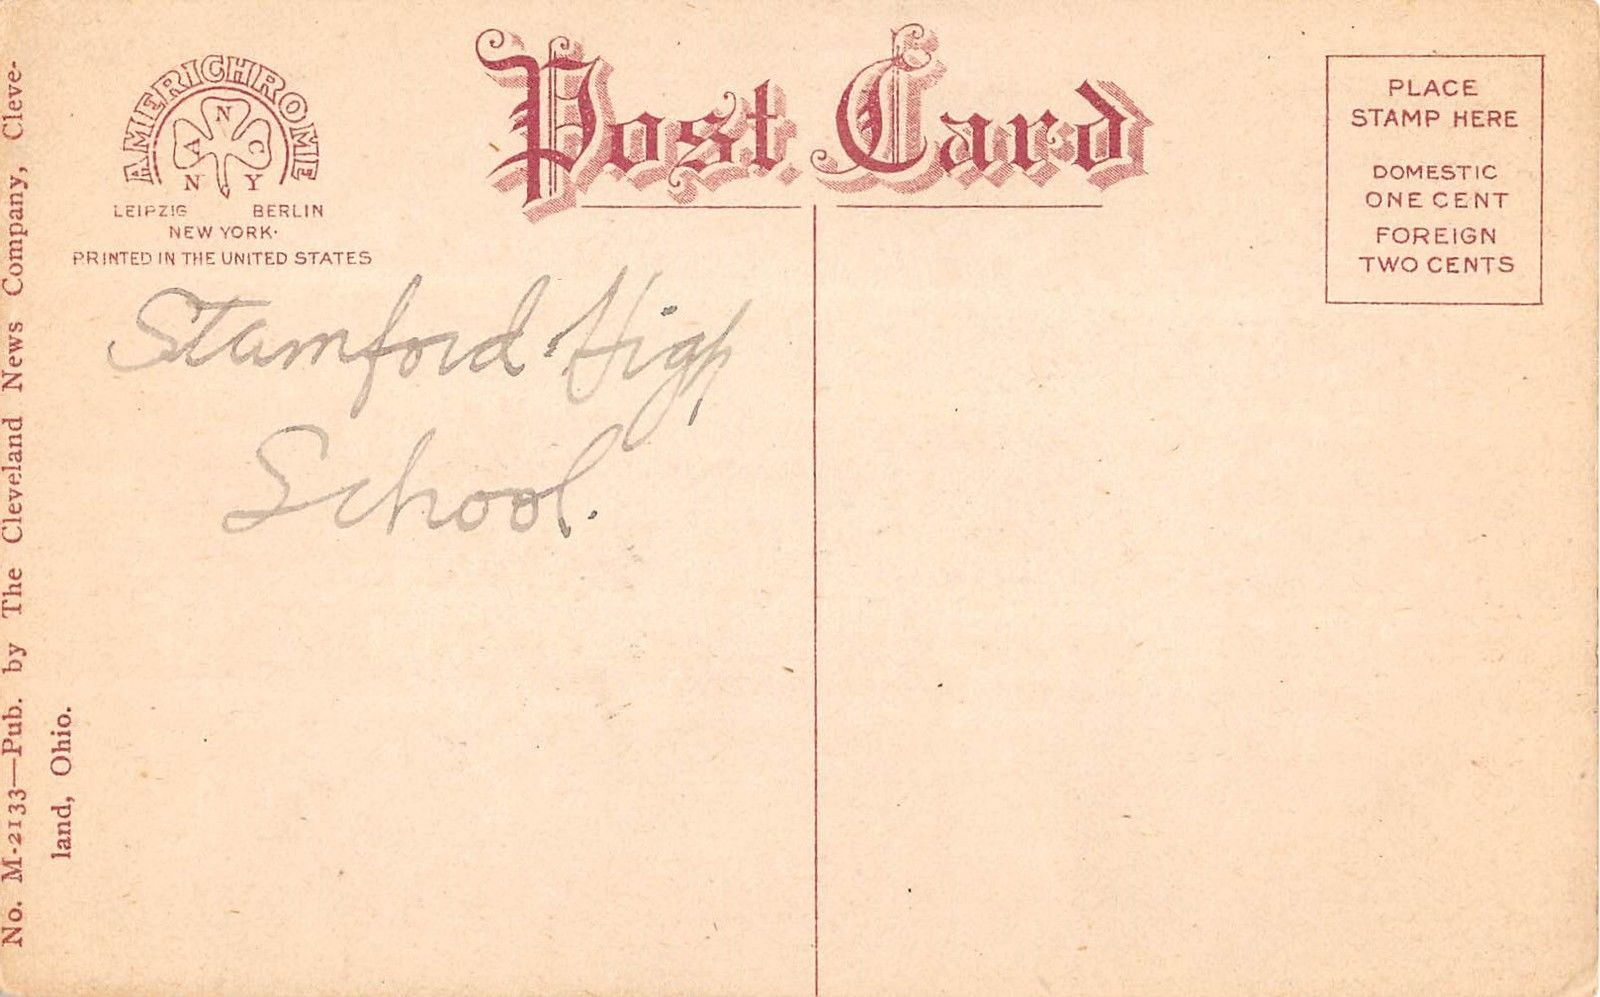 AMERICHROME
N
A C
N Y
LEIPZIG BERLIN
NEW YORK·
PRINTED IN THE UNITED STATES
Post Card
PLACE
STAMP HERE
DOMESTIC
ONE CENT
FOREIGN
TWO CENTS
Stamford High
School.
No. M-2133—Pub. by The Cleveland News Company, Cleve-
land, Ohio.